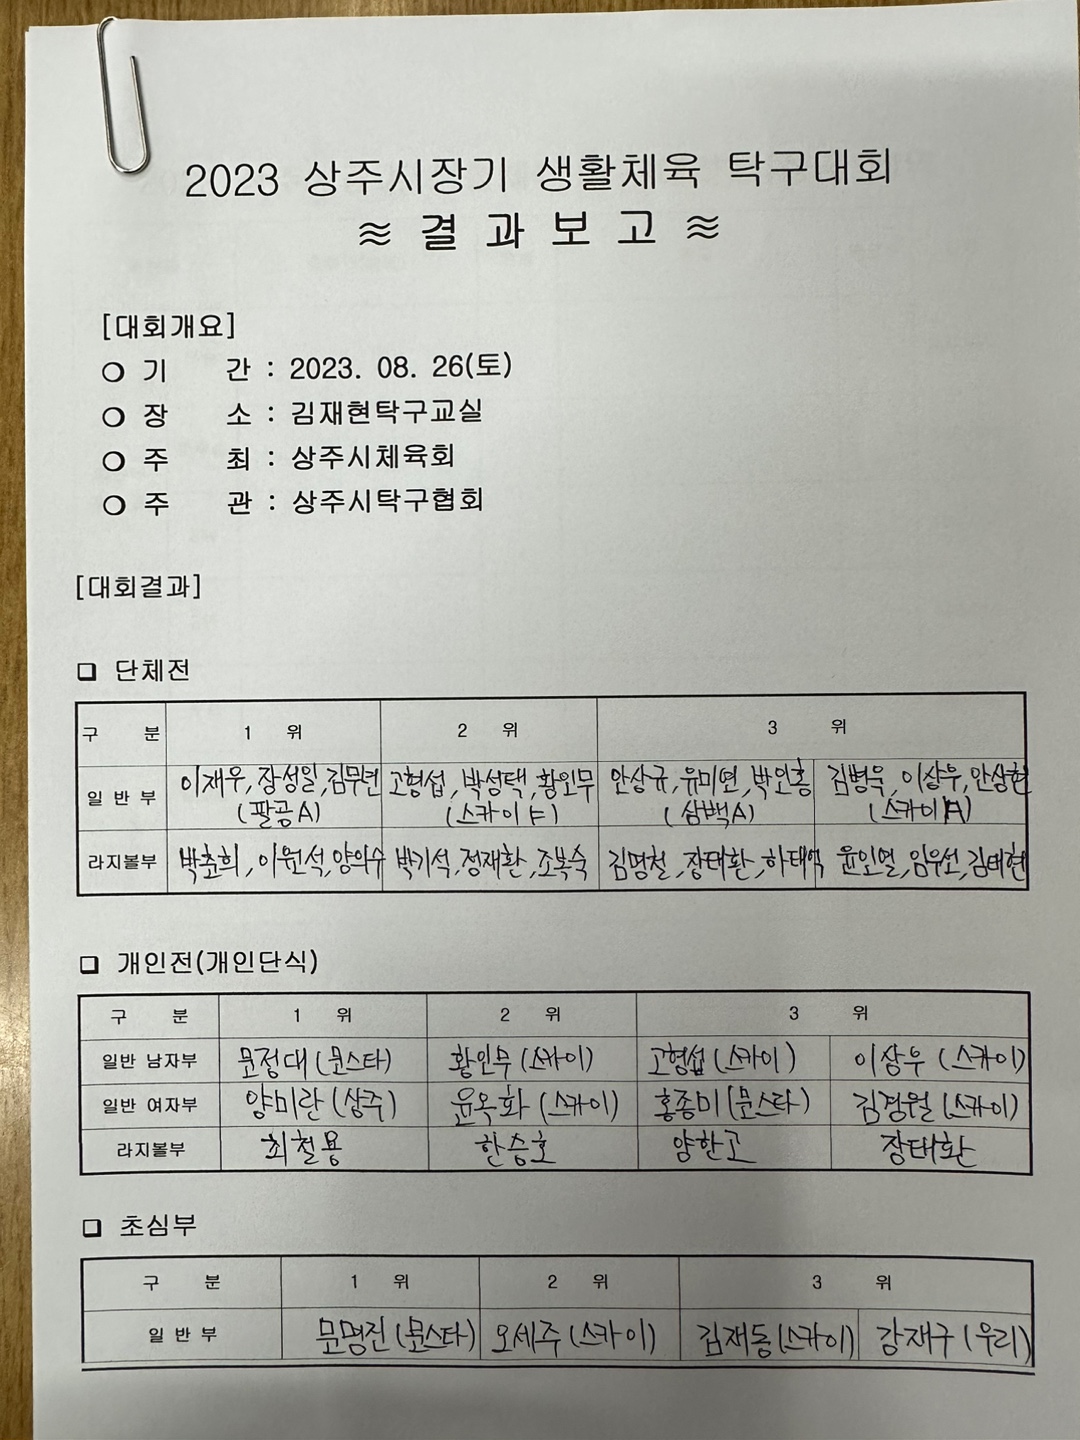 2023 상주시장기 생활체육 탁구대회
≋ 결 과 보 고 ≋
[대회개요]
❍ 기 간 : 2023. 08. 26(토)
❍ 장 소 : 김재현탁구교실
❍ 주 최 : 상주시체육회
❍ 주 관 : 상주시탁구협회
[대회결과]
❑ 단체전
구 분 1 위 2 위 3 위
일 반 부 이재우, 장성일, 고형섭, 박성택, 황인무 안상규, 유미연, 박인홍 김병욱, 이상우, 안상현
(팔공A) (스카이F) (삼백A) (스카이A)
라지볼부 박춘희, 이원석, 양의수 박기석, 정재환, 조복숙 김명철, 장태환, 하태억 윤인열, 임우선, 김태현
❑ 개인전(개인단식)
구 분 1 위 2 위 3 위
일반 남자부 문정대(문스타) 황인무(스카이) 고형섭(스카이) 이상우(스카이)
일반 여자부 양미란(상주) 윤옥화(스카이) 홍종미(문스타) 김정월(스카이)
라지볼부 최철용 한승호 양한고 장태환
❑ 초심부
구 분 1 위 2 위 3 위
일 반 부 문명진(문스타) 오세주(스카이) 김재동(스카이) 강재구(우리)